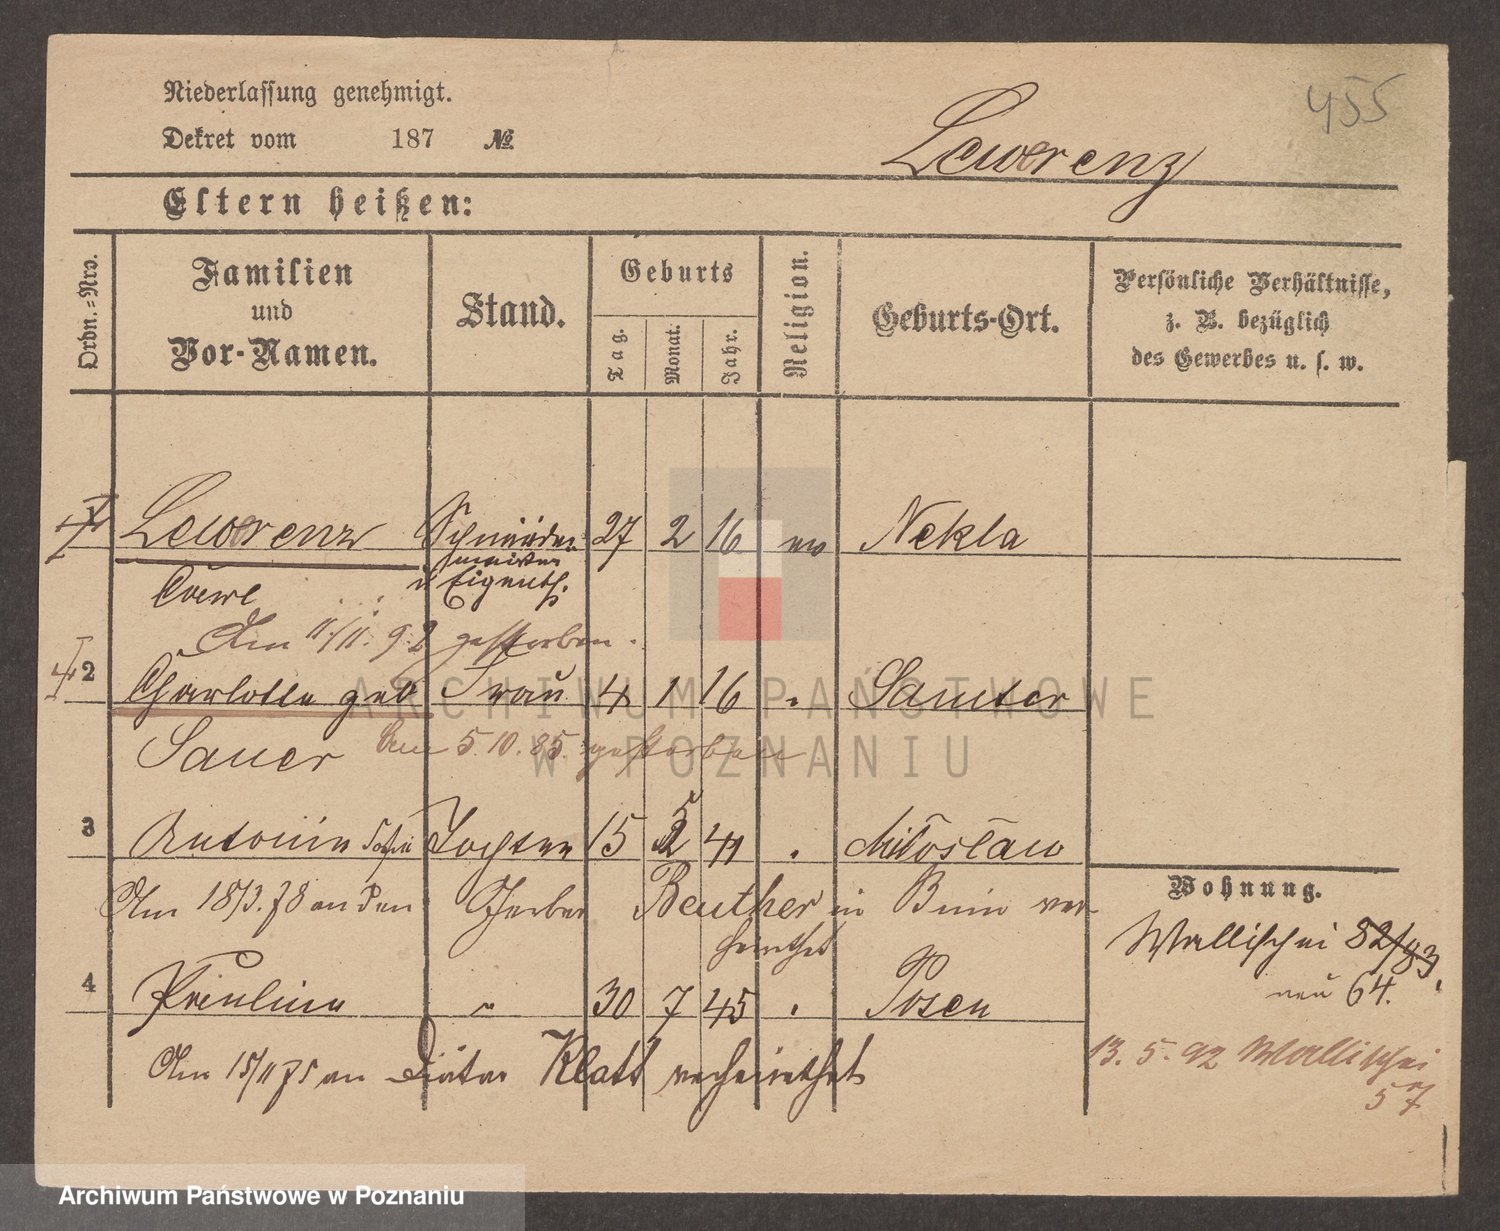 455
Niederlassung genehmigt.
Dekret vom 187 №
Lewerenz
Eltern heißen:
Ordn.-Nro.
Familien
und
Vor-Namen.
Stand.
Geburts
Tag.
Monat.
Jahr.
Religion.
Geburts-Ort.
Persönliche Verhältnisse,
z. B. bezüglich
des Gewerbes u. s. w.
1 Lewerenz Schneider 27 2 16 ev Nekla
meister
u Eigenth.
Carl
Am 11/11. 92 gestorben.
2 Charlotte geb Frau 4 1 16 " Samter
Sauer Am 5.10.85. gestorben
3 Antonie Sofie Tochter 15 5 41 " Miłosław
Am 18/3.78 an den Gerber Beuther in Bnin ver-
heirathet
4 Pauline " 30 7 45 " Posen
Am 15/11 75 an Diätar Klatt verheirathet
Wohnung.
Wallischei 82/83.
neu 64.
13. 5. 92 Wallischei
57
ARCHIWUM PAŃSTWOWE
W POZNANIU
Archiwum Państwowe w Poznaniu